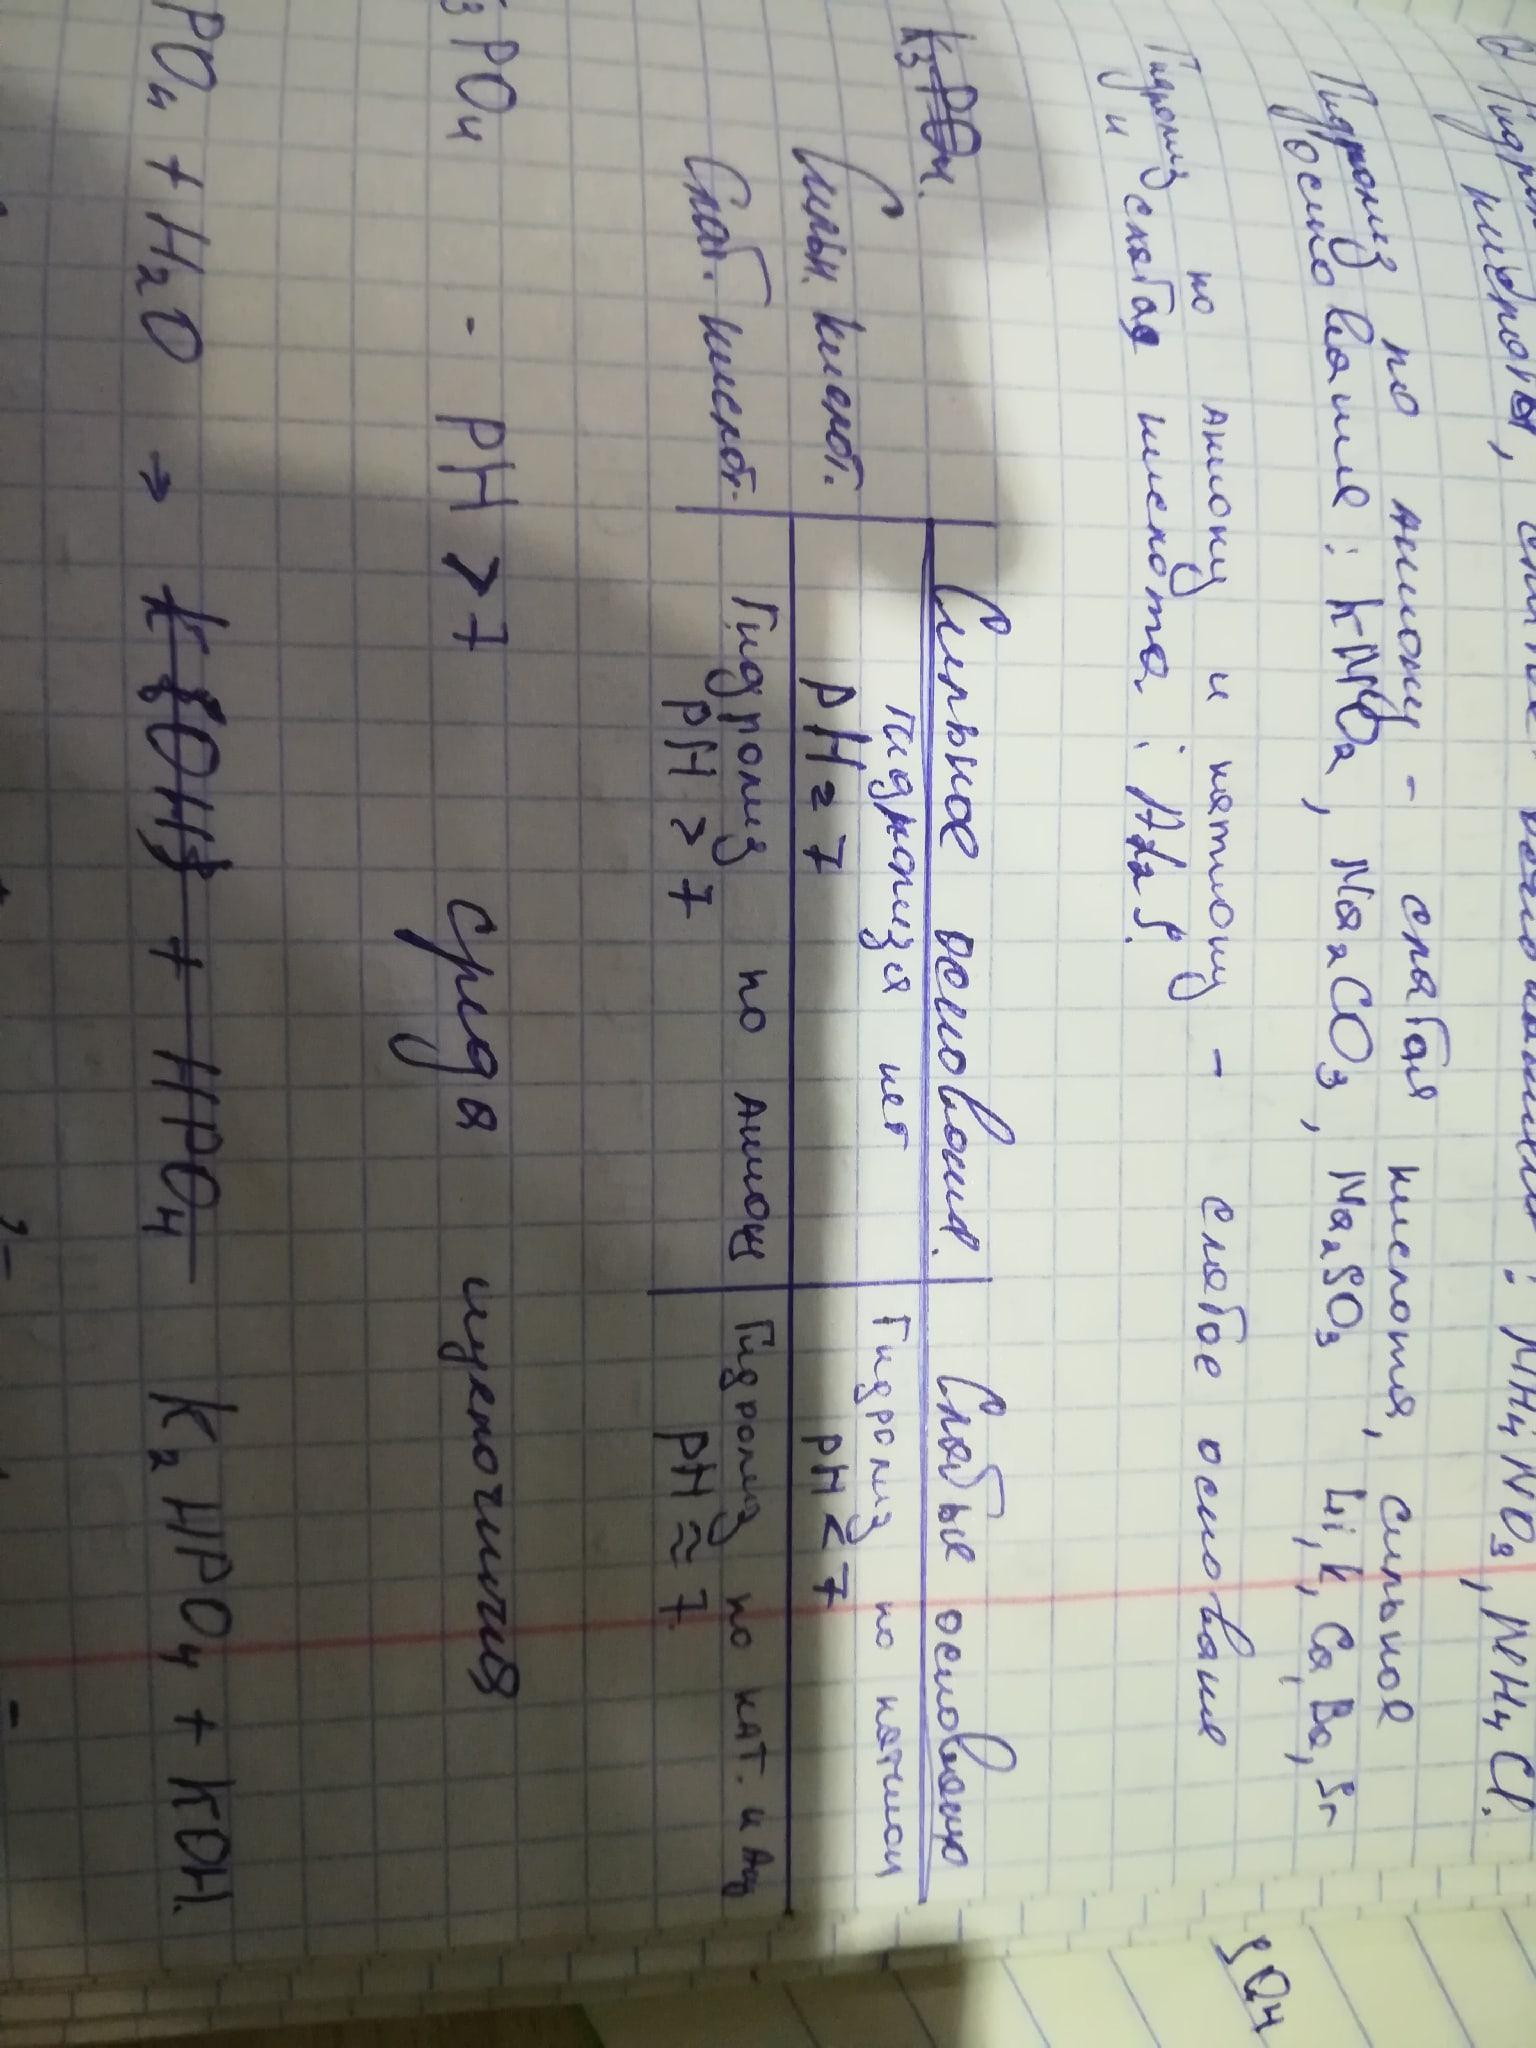 2) Гидр
кислоты,
основания: NH₄NO₃, NH₄Cl.
Гидролиз по аниону - слабая кислота, сильное
основание: KNO₂, Na₂CO₃, Na₂SO₃ Li, K, Ca, Ba, Sr
Гидролиз по аниону и катиону - слабое основание
и слабая кислота:
K₃PO₄.
Сильное основание. Слабые основанию
Сильн. кислот. гидролиза нет Гидролиз по катион
pH = 7 pH < 7
Слаб. кислот. Гидролиз по анион Гидролиз по кат. и ан
pH > 7 pH ≈ 7.
₃PO₄ - PH > 7 среда щелочная
PO₄ + H₂O → + HPO₄ K₂HPO₄ + KOH.
SO₄